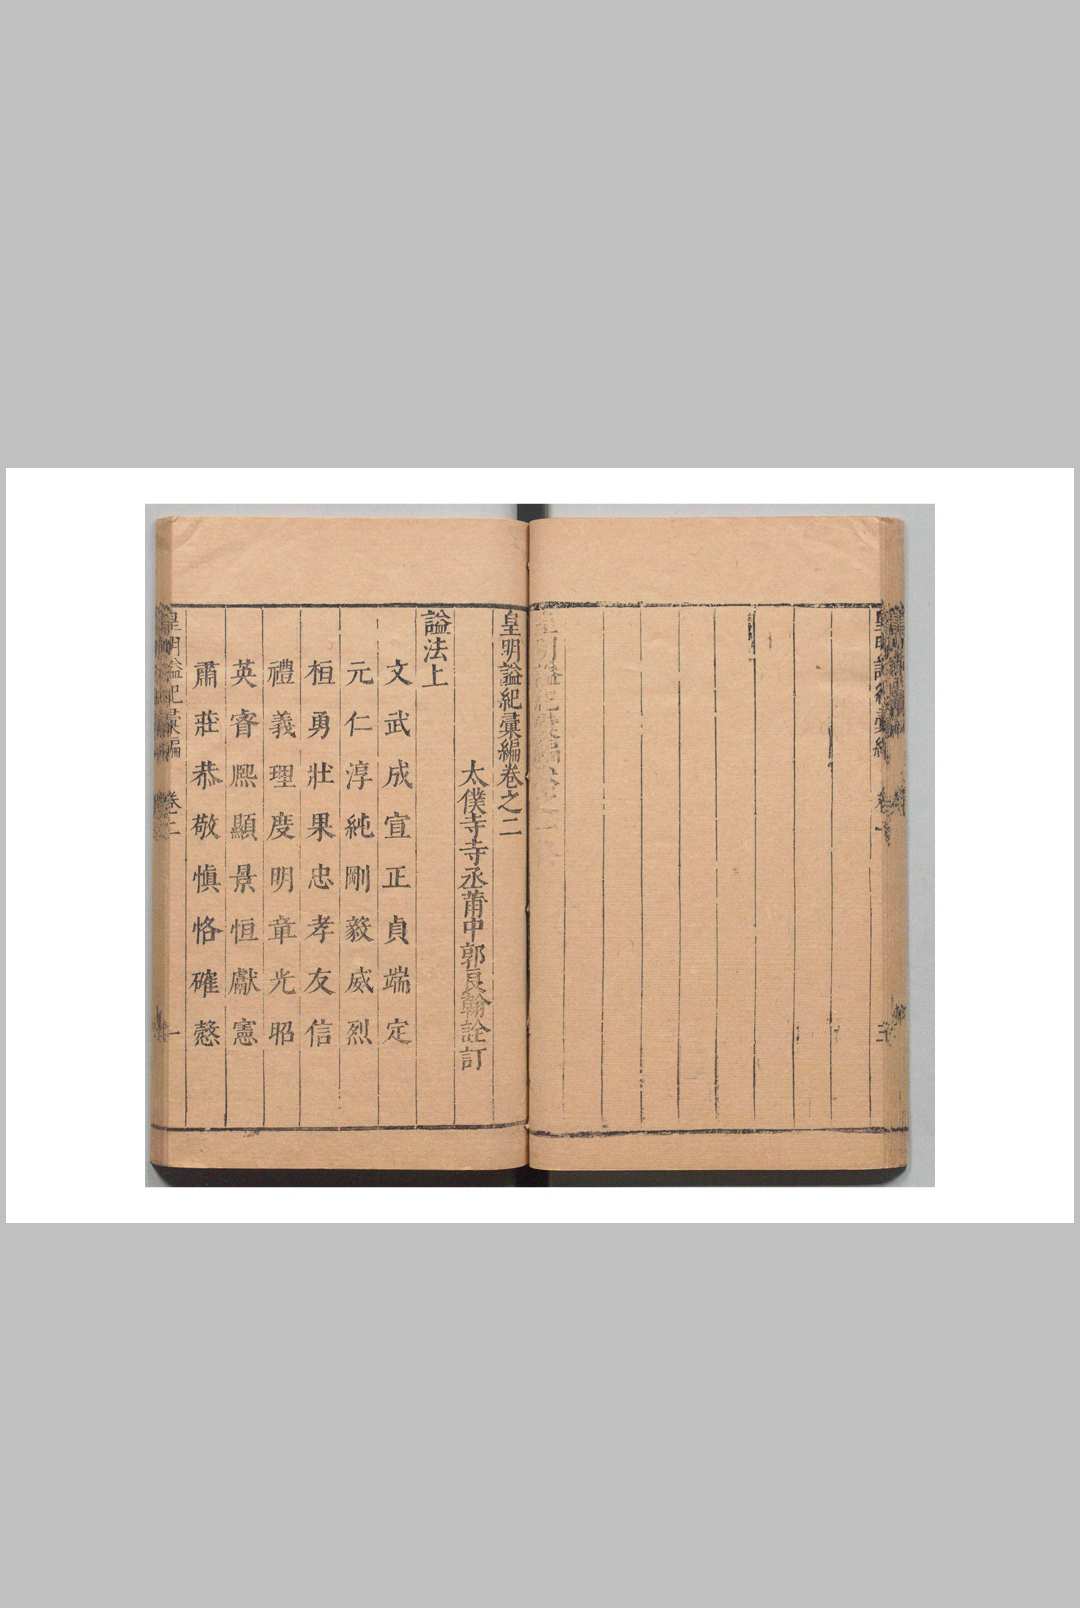 皇明謚紀彙編卷之二
太僕寺寺丞莆中郭良翰詮訂
謚法上
文武成宣正貞端定
元仁淳純剛毅威烈
桓勇壯果忠孝友信
禮義理度明章光昭
英睿熙顯景恒獻憲
肅莊恭敬慎恪確愨
皇明謚紀彙編
卷之二
一